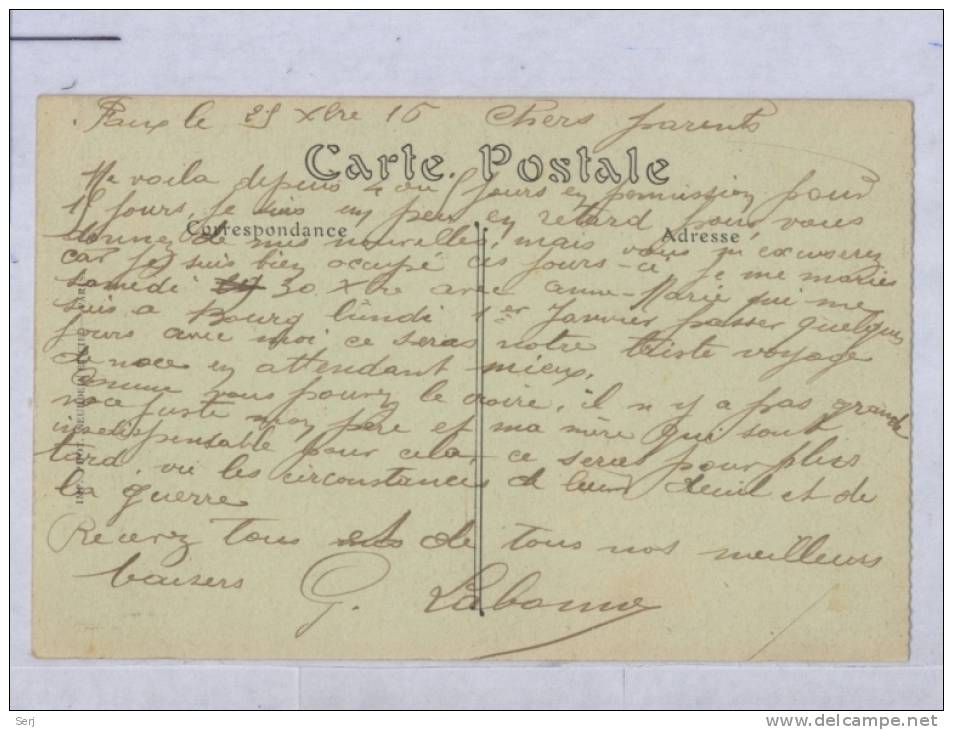 le 25 Xbre 16 Chers parents
Carte Postale
Me voila depuis 4 ou 5 jours en permission pour
jours, je suis un peu en retard pour vous
Correspondance
Adresse
donnez de mes nouvelles, mais vous m'excuserez
car je suis bien occupé ces jours-ci je me maries
samedi 30 Xbre avec Anne-Marie qui me
suis a Bourg lundi 1er Janvier passer quelques
jours avec moi ce seras notre triste voyage
de noce en attendant mieux.
comme vous pouvez le croire, il n'y a pas grande
noce juste mon père et ma mère qui sont
indispensable pour cela, ce seras pour plus
tard, vu les circonstances de leur deuil et de
la guerre
Recevez tous de tous nos meilleurs
baisers G. Labonne
Serj
www.delcampe.net